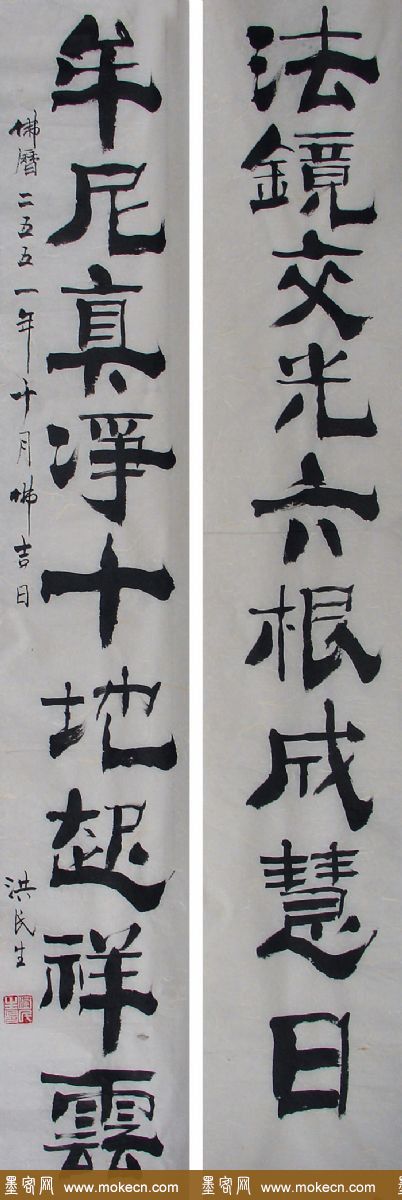 法鏡交光六根成慧日
牟尼真淨十地起祥雲
佛曆二五五一年十月佛吉日
洪民生
墨客网 www.mokecn.com 墨客网 www.mokecn.com